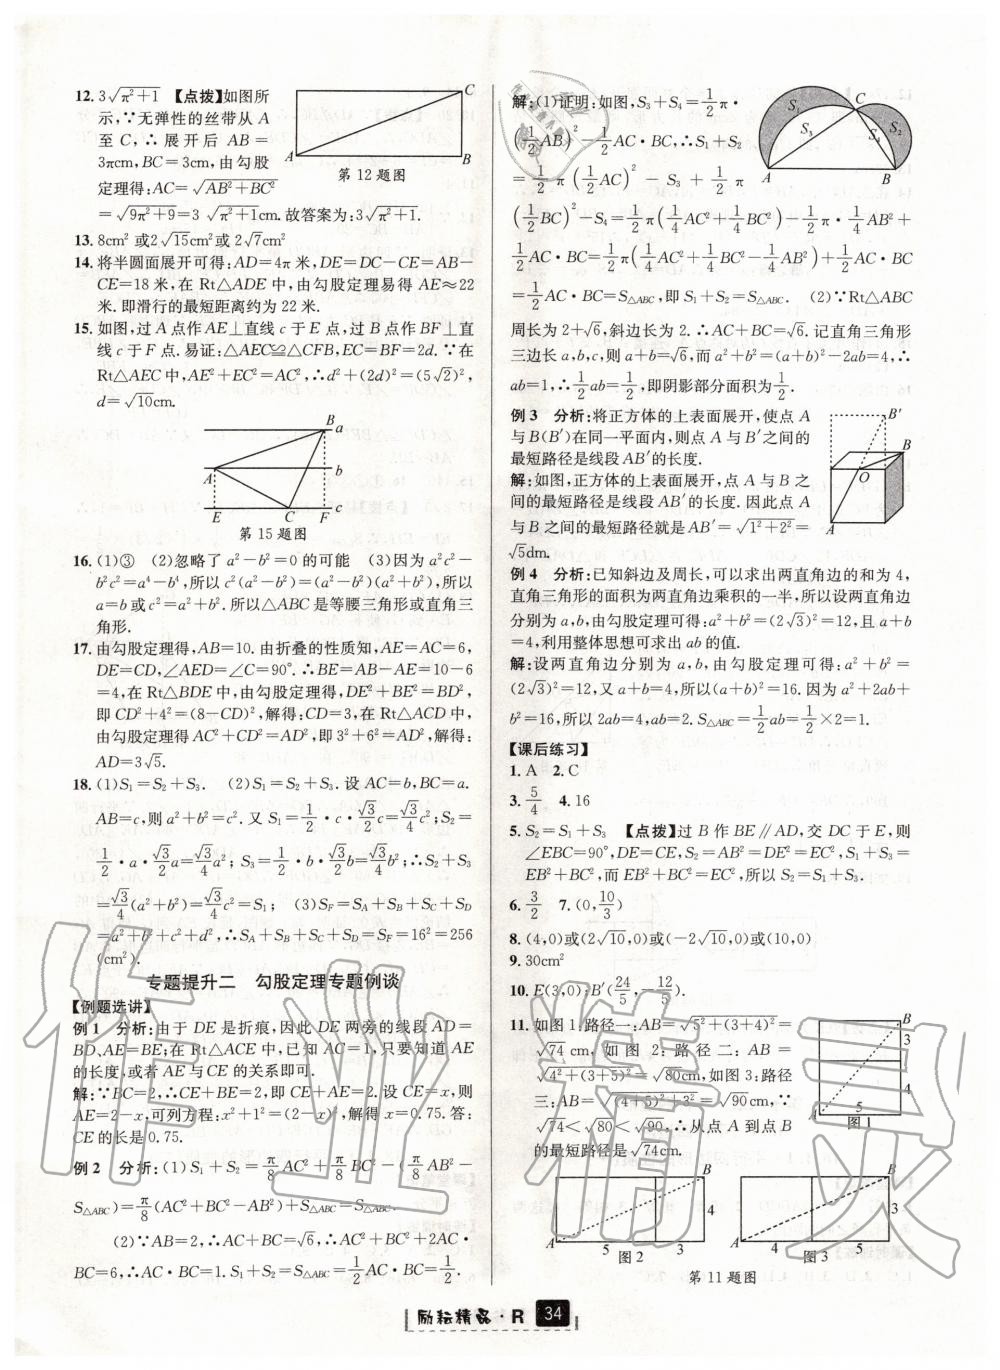 12. 3√(π²+1) 【点拨】如图所
示,∵无弹性的丝带从 A
至 C,∴展开后 AB=
3πcm,BC=3cm,由勾股
定理得:AC=√(AB²+BC²)
=√(9π²+9)=3√(π²+1)cm.故答案为:3√(π²+1).
A B C
第 12 题图
13. 8cm² 或2√15cm²或 2√7cm²
14. 将半圆面展开可得:AD=4π 米,DE=DC-CE=AB-
CE=18 米,在 Rt△ADE 中,由勾股定理易得 AE≈22
米.即滑行的最短距离约为 22 米.
15. 如图,过 A 点作 AE⊥直线 c 于 E 点,过 B 点作 BF⊥直
线 c 于 F 点.易证:△AEC≌△CFB,EC=BF=2d.∵在
Rt△AEC 中,AE²+EC²=AC²,∴d²+(2d)²=(5√2)²,
d=√10cm.
B a
A b
E C F c
第 15 题图
16. (1)③ (2)忽略了 a²-b²=0 的可能 (3)因为 a²c²-
b²c²=a⁴-b⁴,所以 c²(a²-b²)=(a²-b²)(a²+b²),所以
a=b或 c²=a²+b².所以△ABC 是等腰三角形或直角三
角形.
17. 由勾股定理得,AB=10.由折叠的性质知,AE=AC=6,
DE=CD,∠AED=∠C=90°.∴BE=AB-AE=10-6
=4,在 Rt△BDE 中,由勾股定理得,DE²+BE²=BD²,
即 CD²+4²=(8-CD)²,解得:CD=3,在 Rt△ACD 中,
由勾股定理得 AC²+CD²=AD²,即 3²+6²=AD²,解得:
AD=3√5.
18. (1)S₁=S₂+S₃. (2)S₁=S₂+S₃.设 AC=b,BC=a.
AB=c,则 a²+b²=c².又 S₁=1/2·c·√3/2c=√3/4c²;S₂=
1/2·a·√3/2a=√3/4a²;S₃=1/2·b·√3/2b=√3/4b²;∴S₂+S₃
=√3/4(a²+b²)=√3/4c²=S₁; (3)S_F=S_A+S_B+S_C+S_D
=a²+b²+c²+d²,∴S_A+S_B+S_C+S_D=S_F=16²=256
(cm²).
专题提升二 勾股定理专题例谈
【例题选讲】
例 1 分析:由于 DE 是折痕,因此 DE 两旁的线段 AD=
BD、AE=BE;在 Rt△ACE 中,已知 AC=1,只要知道 AE
的长度,或者 AE 与 CE 的关系即可.
解:∵BC=2,∴CE+BE=2,即 CE+AE=2.设 CE=x,则
AE=2-x,可列方程:x²+1²=(2-x)²,解得 x=0.75.答:
CE 的长是 0.75.
例 2 分析:(1)S₁+S₂=π/8AC²+π/8BC²-(π/8AB²-
S△ABC)=π/8(AC²+BC²-AB²)+S△ABC=S△ABC.
(2)∵AB=2,∴AC+BC=√6,∴AC²+BC²+2AC·
BC=6,∴AC·BC=1.S₁+S₂=S△ABC=1/2AC·BC=1/2.
解:(1)证明:如图,S₃+S₄=1/2π·
(1/2AB)²-1/2AC·BC,∴S₁+S₂
=1/2π(1/2AC)²-S₃+1/2π
(1/2BC)²-S₄=1/2π(1/4AC²+1/4BC²)-1/2π·1/4AB²+
1/2AC·BC=1/2π(1/4AC²+1/4BC²-1/4AB²)+1/2AC·BC
=1/2AC·BC=S△ABC,即 S₁+S₂=S△ABC. (2)∵Rt△ABC
周长为 2+√6,斜边长为 2.∴AC+BC=√6.记直角三角形
三边长 a,b,c,则 a+b=√6,而 a²+b²=(a+b)²-2ab=4,∴
ab=1,∴1/2ab=1/2,即阴影部分面积为1/2.
S₁ S₂ S₃ S₄ A B C
例 3 分析:将正方体的上表面展开,使点 A
与 B(B′)在同一平面内,则点 A 与 B′之间的
最短路径是线段 AB′的长度.
解:如图,正方体的上表面展开,点 A 与 B 之
间的最短路径是线段 AB′的长度.因此点 A
与 B 之间的最短路径就是 AB′=√(1²+2²)=
√5dm.
B′ B O A
例 4 分析:已知斜边及周长,可以求出两直角边的和为 4,
直角三角形的面积为两直角边乘积的一半,所以设两直角边
分别为 a,b,由勾股定理可得:a²+b²=(2√3)²=12,且 a+b
=4,利用整体思想可求出 ab 的值.
解:设两直角边分别为 a,b,由勾股定理可得:a²+b²=
(2√3)²=12,又 a+b=4,所以(a+b)²=16.因为 a²+2ab+
b²=16,所以 2ab=4,ab=2.S△ABC=1/2ab=1/2×2=1.
【课后练习】
1. A 2. C
3. 5/4 4. 16
5. S₂=S₁+S₃ 【点拨】过 B 作 BE∥AD,交 DC 于 E,则
∠EBC=90°,DE=CE,S₂=AB²=DE²=EC²,S₁+S₃=
EB²+BC²,而 EB²+BC²=EC²,所以 S₂=S₁+S₃.
6. 3/2 7. (0,10/3)
8. (4,0)或(2√10,0)或(-2√10,0)或(10,0)
9. 30cm²
10. E(3,0);B′(24/5,-12/5).
11. 如图 1:路径一:AB=√(5²+(3+4)²)=
√74 cm,如图 2:路径二:AB=
√(4²+(3+5)²)=√80cm,如图 3:路径
三:AB=√((4+5)²+3²)=√90cm,∵
√74<√80<√90,∴从点 A 到点 B
的最短路径是√74cm.
B 3 4 A 5
图 1
B 4 A 5 3
图 2
B 3 A 4 5
图 3
第 11 题图
励耘精品·R 34
作业精灵